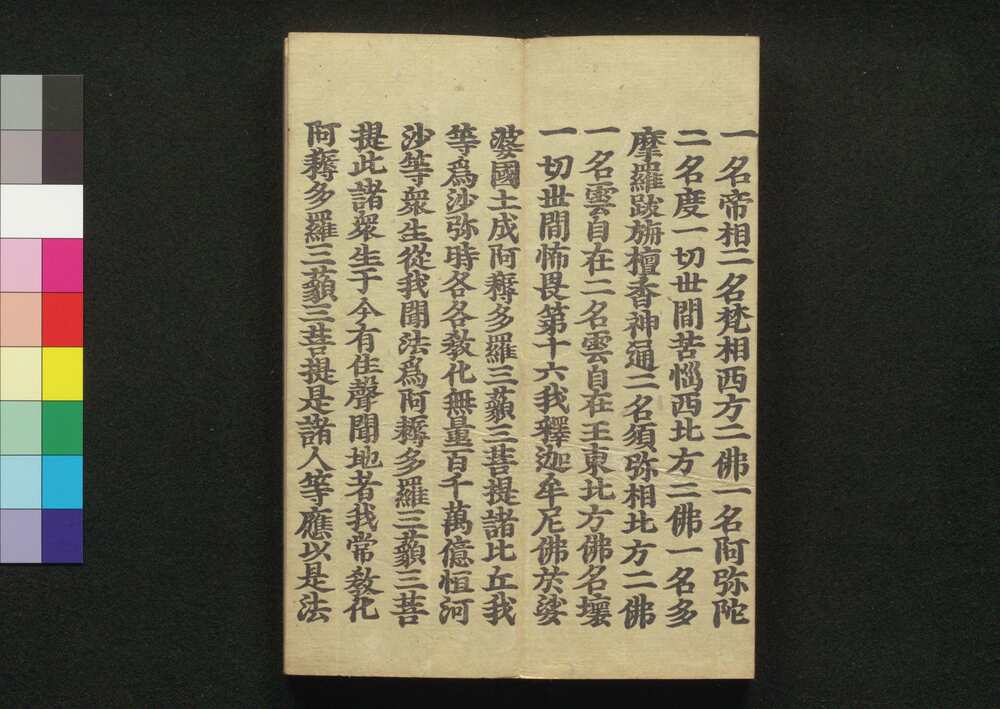 一名帝相二名梵相西方二佛一名阿弥陀
二名度一切世間苦惱西北方二佛一名多
摩羅跋栴檀香神通二名須弥相北方二佛
一名雲自在二名雲自在王東北方佛名壞
一切世間怖畏第十六我釋迦牟尼佛於娑
婆國土成阿耨多羅三藐三菩提諸比丘我
等爲沙弥時各各教化無量百千萬億恒河
沙等衆生從我聞法爲阿耨多羅三藐三菩
提此諸衆生于今有住聲聞地者我常教化
阿耨多羅三藐三菩提是諸人等應以是法